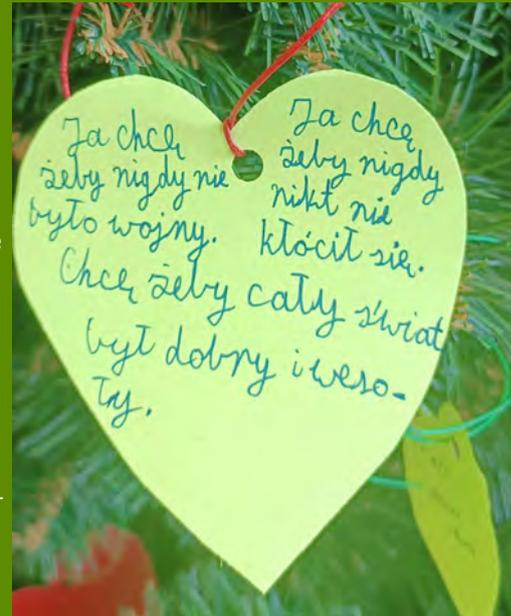 Ja chcę
żeby nigdy nie
było wojny.
Ja chcę
żeby nigdy
nikt nie
kłócił się.
Chcę żeby cały świat
był dobry i weso-
ły.